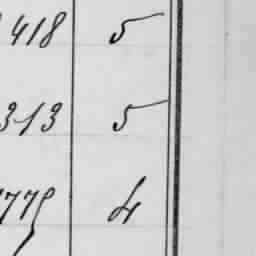 418 5
313 5
779 4